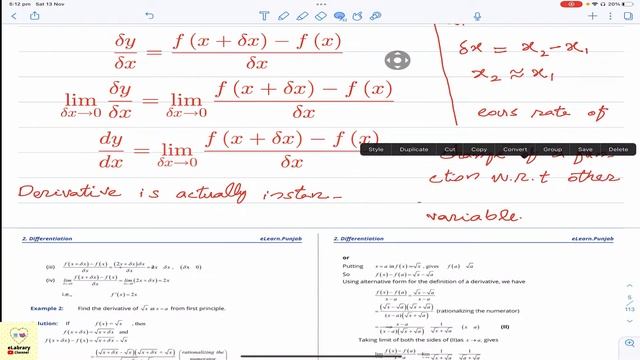 5:12 pm Sat 13 Nov
20%
δy/δx = f (x + δx) − f (x) / δx
lim δx→0 δy/δx = lim δx→0 f (x + δx) − f (x) / δx
dy/dx = lim δx→0 f (x + δx) − f (x) / δx
Derivative is actually instan-
δx = x₂ - x₁
x₂ ≈ x₁
eous rate of
Style Duplicate Cut Copy Convert Group Save Delete
ction w.r.t other
variable.
2. Differentiation eLearn.Punjab
(iii) f(x+δx)−f(x)/δx = (2x+δx)δx/δx = 2x δx, (δx 0)
(iv) lim f(x+δx)−f(x)/δx = lim(2x+δx) = 2x
i.e., f'(x) = 2x
Example 2: Find the derivative of √x at x = a from first principle.
lution: If f(x) = √x, then
f(x+δx) = √x+δx and
f(x+δx) − f(x) = √x+δx − √x
rationalizing the
2. Differentiation eLearn.Punjab
or
Putting x = a in f(x) = √x, gives f(a) √a
So f(x) − f(a) = √x − √a
Using alternative form for the definition of a derivative, we have
f(x)−f(a)/x−a = √x−√a/x−a
= (√x−√a)(√x+√a)/(x−a)(√x+√a) (rationalizing the numerator)
= x−a/(x−a)(√x+√a) = 1/√x+√a (II)
Taking limit of both sides of (II)as x → a, gives
5
113
eLabrary
Channel